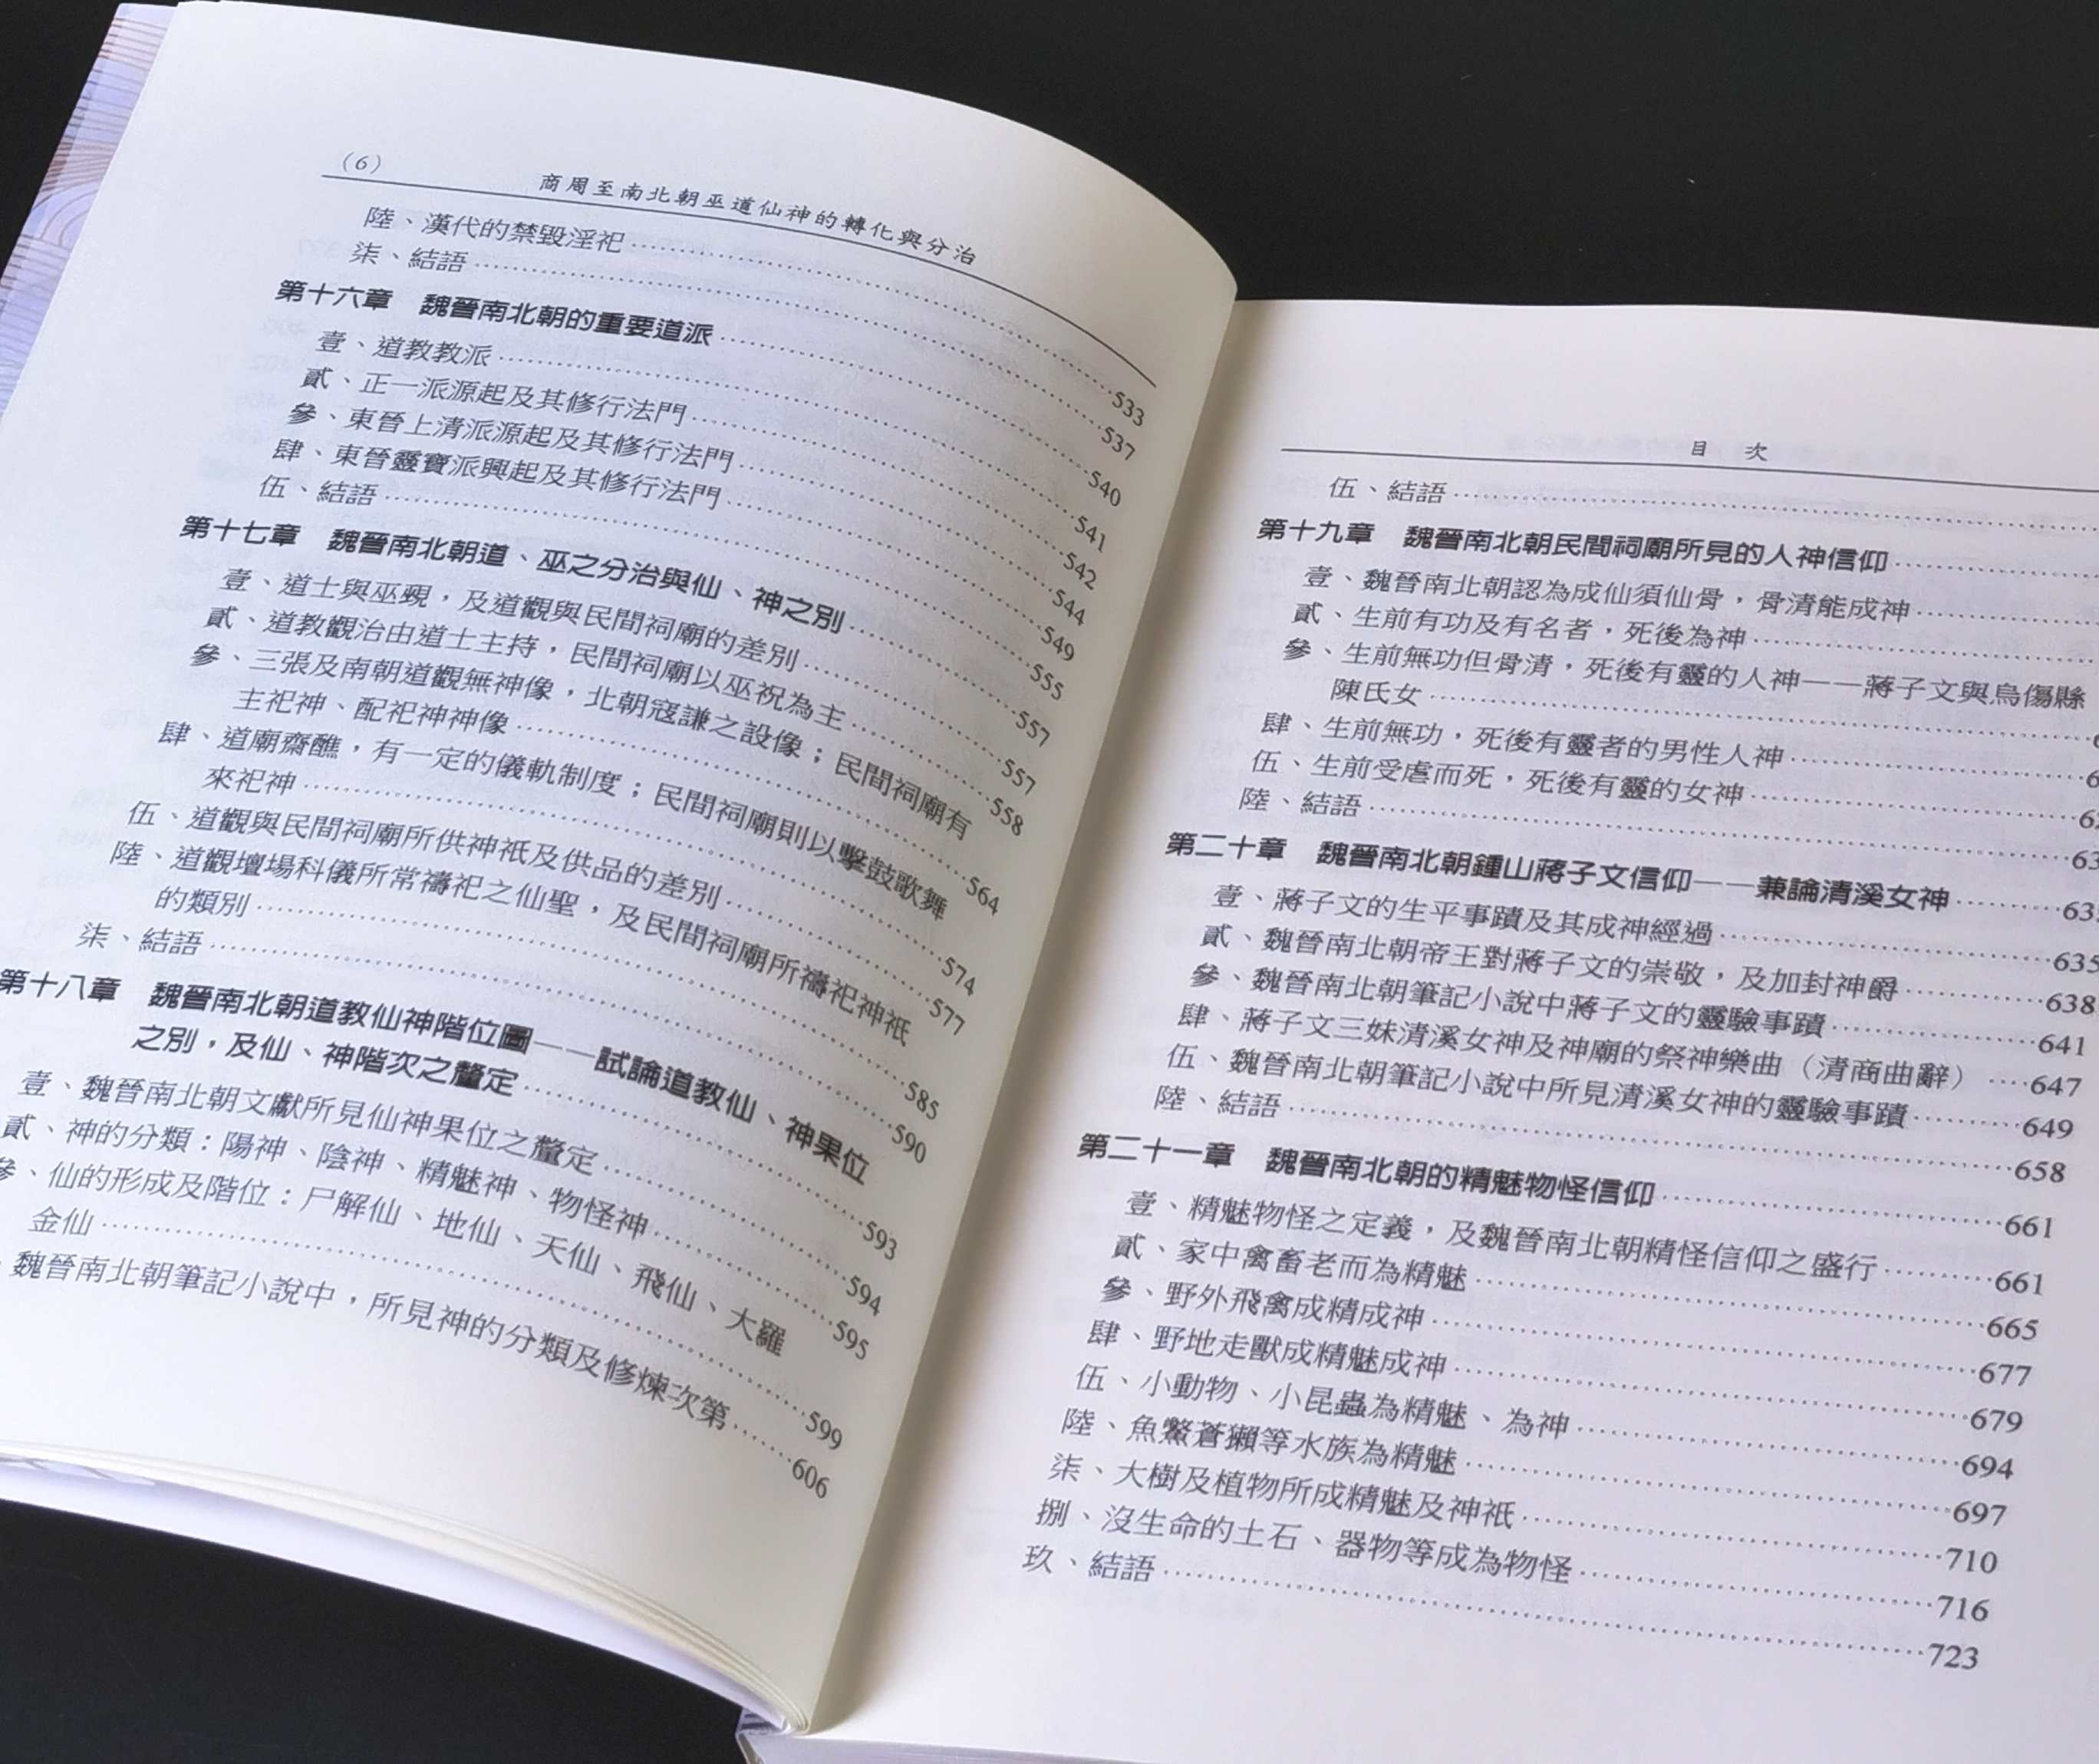 (6)
商周至南北朝巫道仙神的轉化與分治
陸、漢代的禁毀淫祀……533
柒、結語……537
第十六章 魏晉南北朝的重要道派……540
壹、道教教派……541
貳、正一派源起及其修行法門……542
參、東晉上清派源起及其修行法門……544
肆、東晉靈寶派興起及其修行法門……549
伍、結語……555
第十七章 魏晉南北朝道、巫之分治與仙、神之別……557
壹、道士與巫覡，及道觀與民間祠廟的差別……557
貳、道教觀治由道士主持，民間祠廟以巫祝為主……558
參、三張及南朝道觀無神像，北朝寇謙之設像；民間祠廟有
主祀神、配祀神神像……564
肆、道廟齋醮，有一定的儀軌制度；民間祠廟則以擊鼓歌舞
來祀神……574
伍、道觀與民間祠廟所供神祇及供品的差別……577
陸、道觀壇場科儀所常禱祀之仙聖，及民間祠廟所禱祀神祇
的類別……585
柒、結語……590
第十八章 魏晉南北朝道教仙神階位圖——試論道教仙、神果位
之別，及仙、神階次之釐定……593
壹、魏晉南北朝文獻所見仙神果位之釐定……594
貳、神的分類：陽神、陰神、精魅神、物怪神……595
參、仙的形成及階位：尸解仙、地仙、天仙、飛仙、大羅
金仙……599
魏晉南北朝筆記小說中，所見神的分類及修煉次第……606
目 次
伍、結語……
第十九章 魏晉南北朝民間祠廟所見的人神信仰……
壹、魏晉南北朝認為成仙須仙骨，骨清能成神……
貳、生前有功及有名者，死後為神……
參、生前無功但骨清，死後有靈的人神——蔣子文與烏傷縣
陳氏女……
肆、生前無功，死後有靈者的男性人神……
伍、生前受虐而死，死後有靈的女神……
陸、結語……
第二十章 魏晉南北朝鍾山蔣子文信仰——兼論清溪女神……
壹、蔣子文的生平事蹟及其成神經過……635
貳、魏晉南北朝帝王對蔣子文的崇敬，及加封神爵……638
參、魏晉南北朝筆記小說中蔣子文的靈驗事蹟……641
肆、蔣子文三妹清溪女神及神廟的祭神樂曲（清商曲辭）……647
伍、魏晉南北朝筆記小說中所見清溪女神的靈驗事蹟……649
陸、結語……658
第二十一章 魏晉南北朝的精魅物怪信仰……661
壹、精魅物怪之定義，及魏晉南北朝精怪信仰之盛行……661
貳、家中禽畜老而為精魅……665
參、野外飛禽成精成神……677
肆、野地走獸成精魅成神……679
伍、小動物、小昆蟲為精魅、為神……694
陸、魚鱉蒼獺等水族為精魅……697
柒、大樹及植物所成精魅及神祇……710
捌、沒生命的土石、器物等成為物怪……716
玖、結語……723